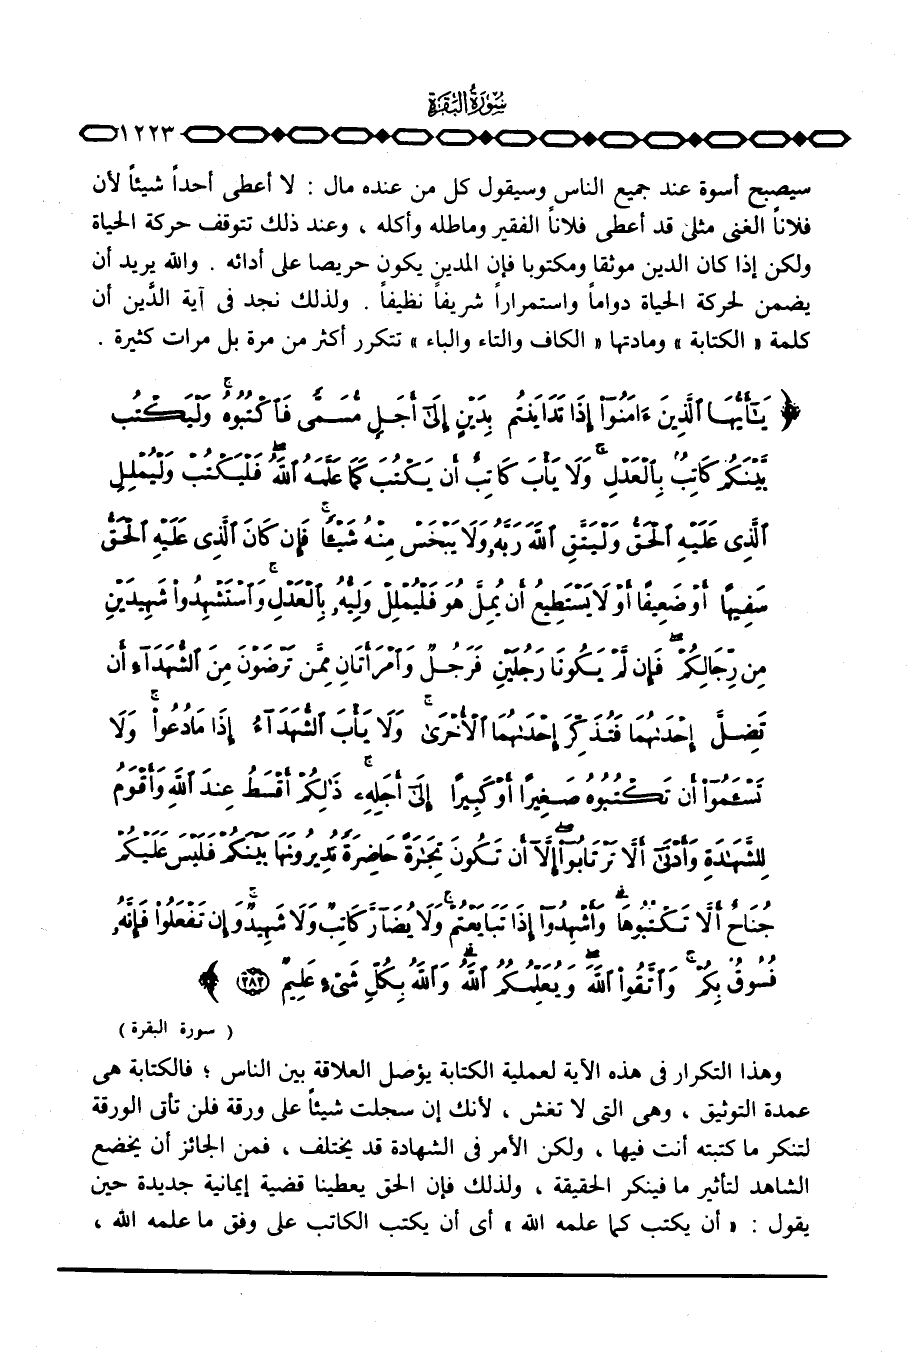 سورة البقرة
١٢٢٣
سيصبح أسوة عند جميع الناس وسيقول كل من عنده مال : لا أعطى أحداً شيئاً لأن
فلاناً الغنى مثلى قد أعطى فلاناً الفقير وماطله وأكله ، وعند ذلك تتوقف حركة الحياة
ولكن إذا كان الدين موثقا ومكتوبا فإن المدين يكون حريصا على أدائه . والله يريد أن
يضمن لحركة الحياة دواماً واستمراراً شريفاً نظيفاً . ولذلك نجد فى آية الدَّين أن
كلمة « الكتابة » ومادتها « الكاف والتاء والباء » تتكرر أكثر من مرة بل مرات كثيرة .
﴿ يَٰٓأَيُّهَا ٱلَّذِينَ ءَامَنُوٓا۟ إِذَا تَدَايَنتُم بِدَيْنٍ إِلَىٰٓ أَجَلٍ مُّسَمًّى فَٱكْتُبُوهُ ۚ وَلْيَكْتُب
بَّيْنَكُمْ كَاتِبٌۢ بِٱلْعَدْلِ ۚ وَلَا يَأْبَ كَاتِبٌ أَن يَكْتُبَ كَمَا عَلَّمَهُ ٱللَّهُ ۚ فَلْيَكْتُبْ وَلْيُمْلِلِ
ٱلَّذِى عَلَيْهِ ٱلْحَقُّ وَلْيَتَّقِ ٱللَّهَ رَبَّهُۥ وَلَا يَبْخَسْ مِنْهُ شَيْـًٔا ۚ فَإِن كَانَ ٱلَّذِى عَلَيْهِ ٱلْحَقُّ
سَفِيهًا أَوْ ضَعِيفًا أَوْ لَا يَسْتَطِيعُ أَن يُمِلَّ هُوَ فَلْيُمْلِلْ وَلِيُّهُۥ بِٱلْعَدْلِ ۚ وَٱسْتَشْهِدُوا۟ شَهِيدَيْنِ
مِن رِّجَالِكُمْ ۖ فَإِن لَّمْ يَكُونَا رَجُلَيْنِ فَرَجُلٌ وَٱمْرَأَتَانِ مِمَّن تَرْضَوْنَ مِنَ ٱلشُّهَدَآءِ أَن
تَضِلَّ إِحْدَىٰهُمَا فَتُذَكِّرَ إِحْدَىٰهُمَا ٱلْأُخْرَىٰ ۚ وَلَا يَأْبَ ٱلشُّهَدَآءُ إِذَا مَا دُعُوا۟ ۚ وَلَا
تَسْـَٔمُوٓا۟ أَن تَكْتُبُوهُ صَغِيرًا أَوْ كَبِيرًا إِلَىٰٓ أَجَلِهِۦ ۚ ذَٰلِكُمْ أَقْسَطُ عِندَ ٱللَّهِ وَأَقْوَمُ
لِلشَّهَٰدَةِ وَأَدْنَىٰٓ أَلَّا تَرْتَابُوٓا۟ ۖ إِلَّآ أَن تَكُونَ تِجَٰرَةً حَاضِرَةً تُدِيرُونَهَا بَيْنَكُمْ فَلَيْسَ عَلَيْكُمْ
جُنَاحٌ أَلَّا تَكْتُبُوهَا ۗ وَأَشْهِدُوٓا۟ إِذَا تَبَايَعْتُمْ ۚ وَلَا يُضَآرَّ كَاتِبٌ وَلَا شَهِيدٌ ۚ وَإِن تَفْعَلُوا۟ فَإِنَّهُۥ
فُسُوقٌۢ بِكُمْ ۗ وَٱتَّقُوا۟ ٱللَّهَ ۖ وَيُعَلِّمُكُمُ ٱللَّهُ ۗ وَٱللَّهُ بِكُلِّ شَىْءٍ عَلِيمٌ ﴿٢٨٢﴾ ﴾
( سورة البقرة )
وهذا التكرار فى هذه الآية لعملية الكتابة يؤصل العلاقة بين الناس ؛ فالكتابة هى
عمدة التوثيق ، وهى التى لا تغش ، لأنك إن سجلت شيئاً على ورقة فلن تأتى الورقة
لتنكر ما كتبته أنت فيها ، ولكن الأمر فى الشهادة قد يختلف ، فمن الجائز أن يخضع
الشاهد لتأثير ما فينكر الحقيقة ، ولذلك فإن الحق يعطينا قضية إيمانية جديدة حين
يقول : « أن يكتب كما علمه الله » أى أن يكتب الكاتب على وفق ما علمه الله ،